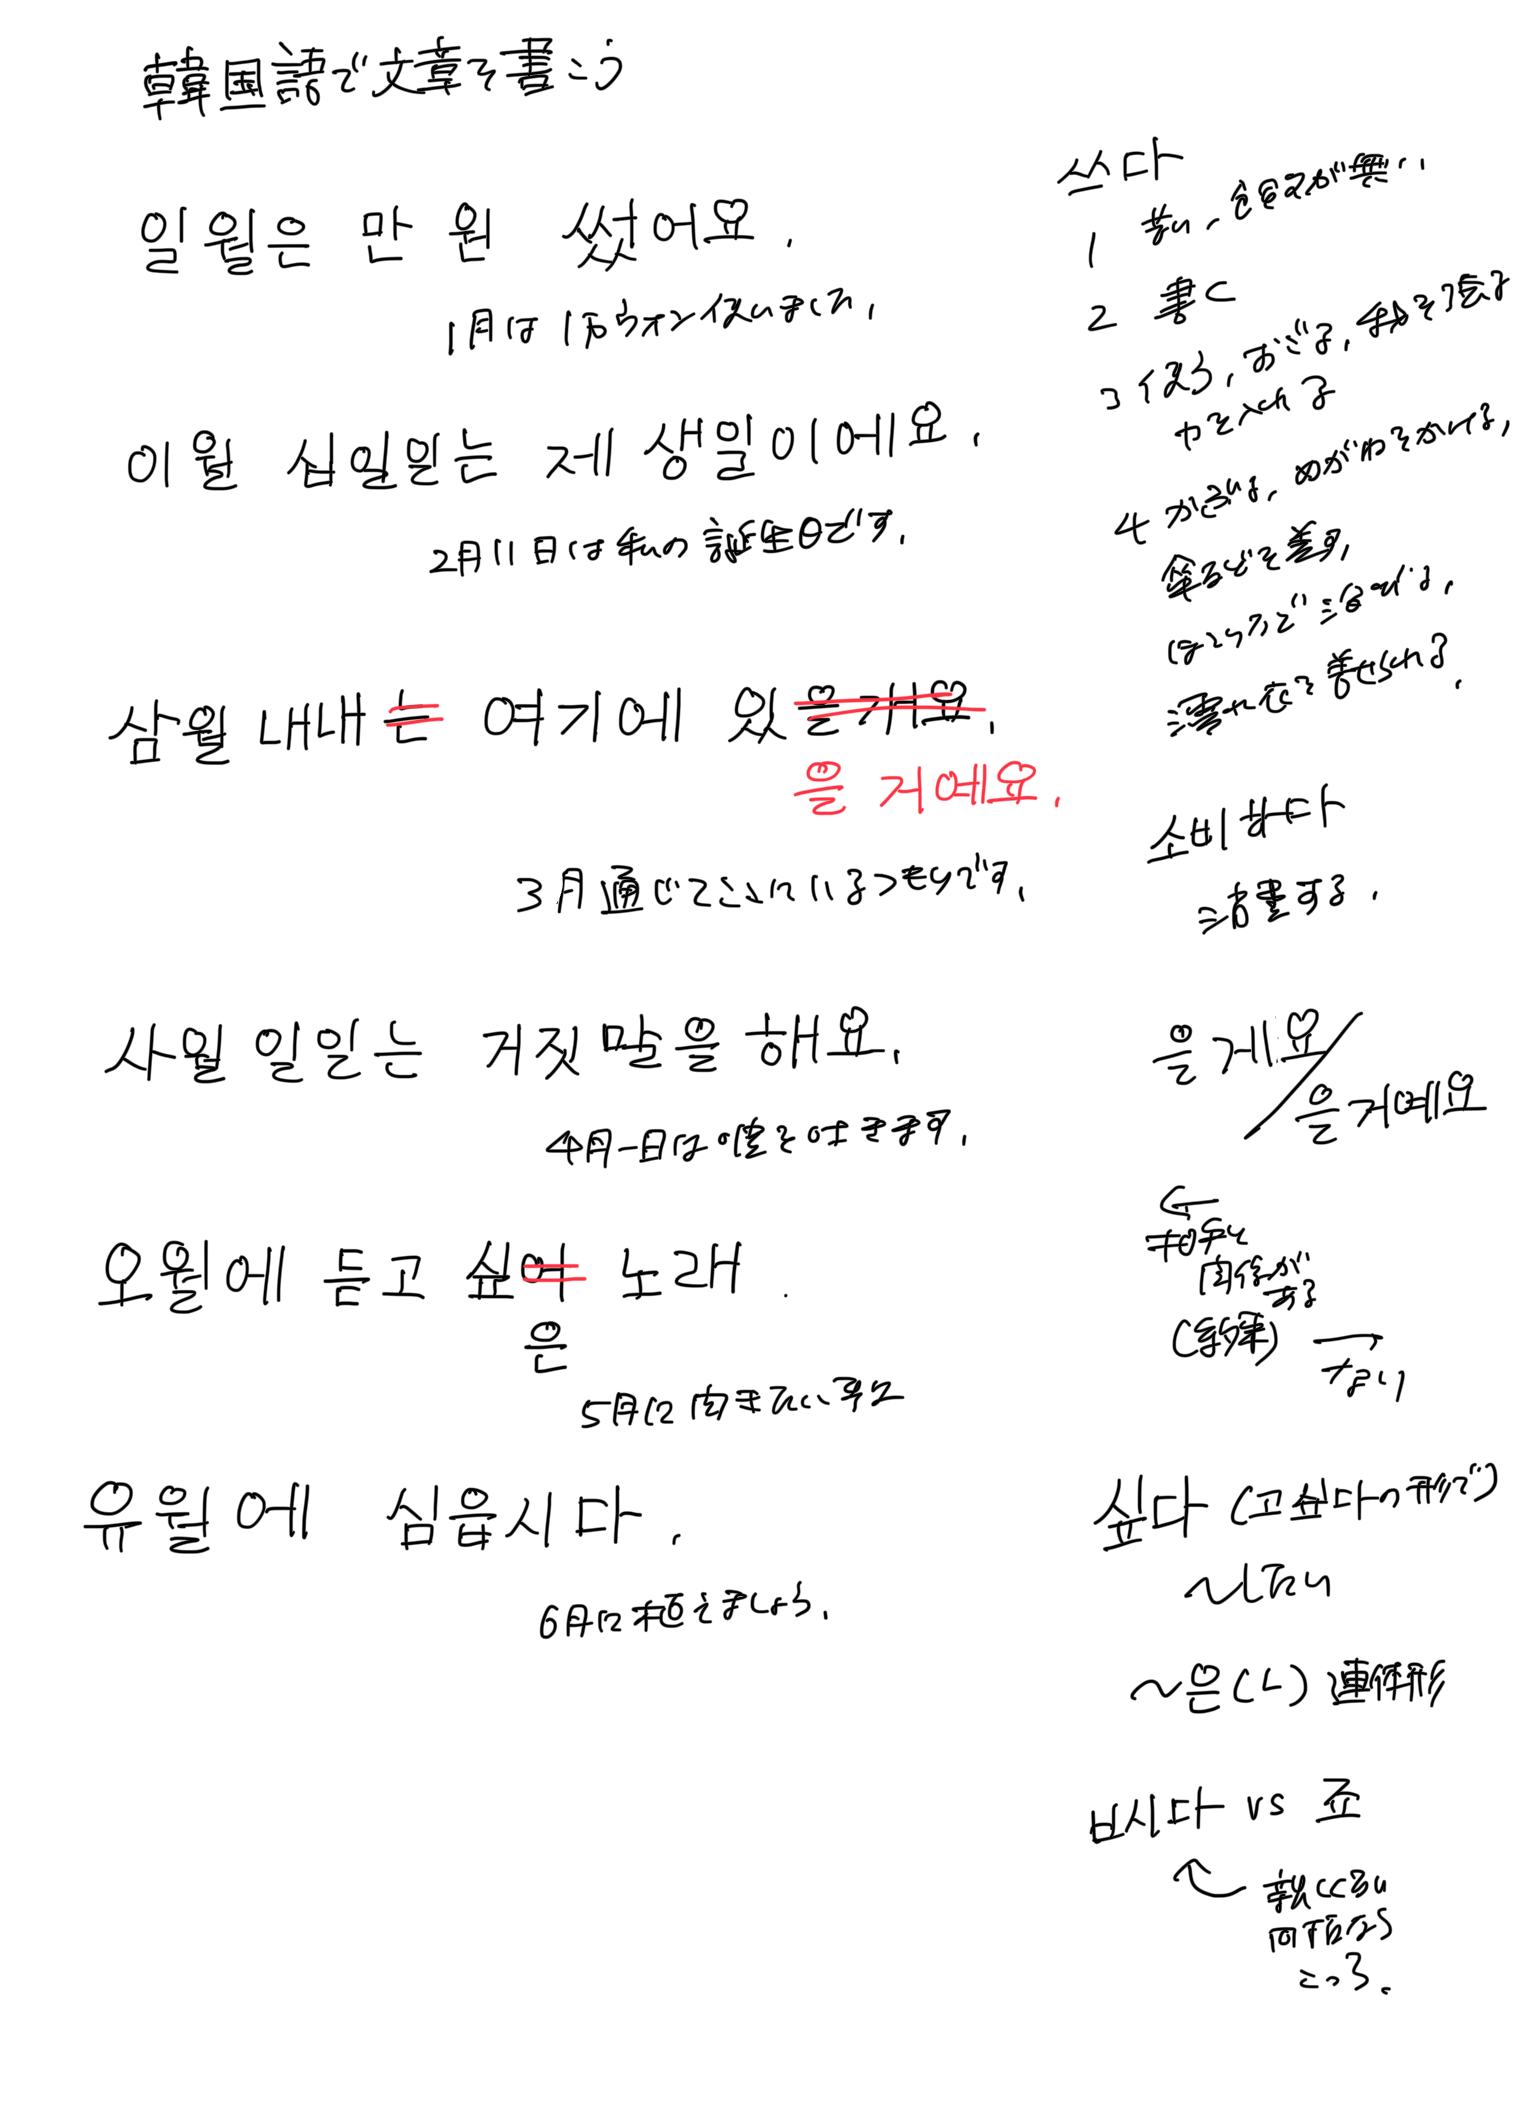 韓国語で文章を書こう
일월은 만 원 썼어요.
1月は1万ウォン使いました.
이월 십일일는 제 생일이에요.
2月11日は私の誕生日です.
삼월 내내는 여기에 있을게요.
을 거예요.
3月通じてここにいるつもりです.
사월 일일는 거짓말을 해요.
4月一日は嘘を吐きます.
오월에 듣고 싶여 노래.
은
5月に聞きたい
유월에 심읍시다.
6月に植えましょう.
쓰다
1 苦い、食欲が無い
2 書く
3 使う、おごる、
力を入れる
4 かぶる、めがねをかける、
傘などを差す、
ほこりなどで
濡れ衣を着せられる.
소비하다
消費する.
을게요/
을거예요
←
相手と
関係が
ある
(約束) →
ない
싶다 (고싶다の形で)
〜したい
〜은(ㄴ) 連体形
ㅂ시다 vs 죠
親しくない
同士なら
こっち.